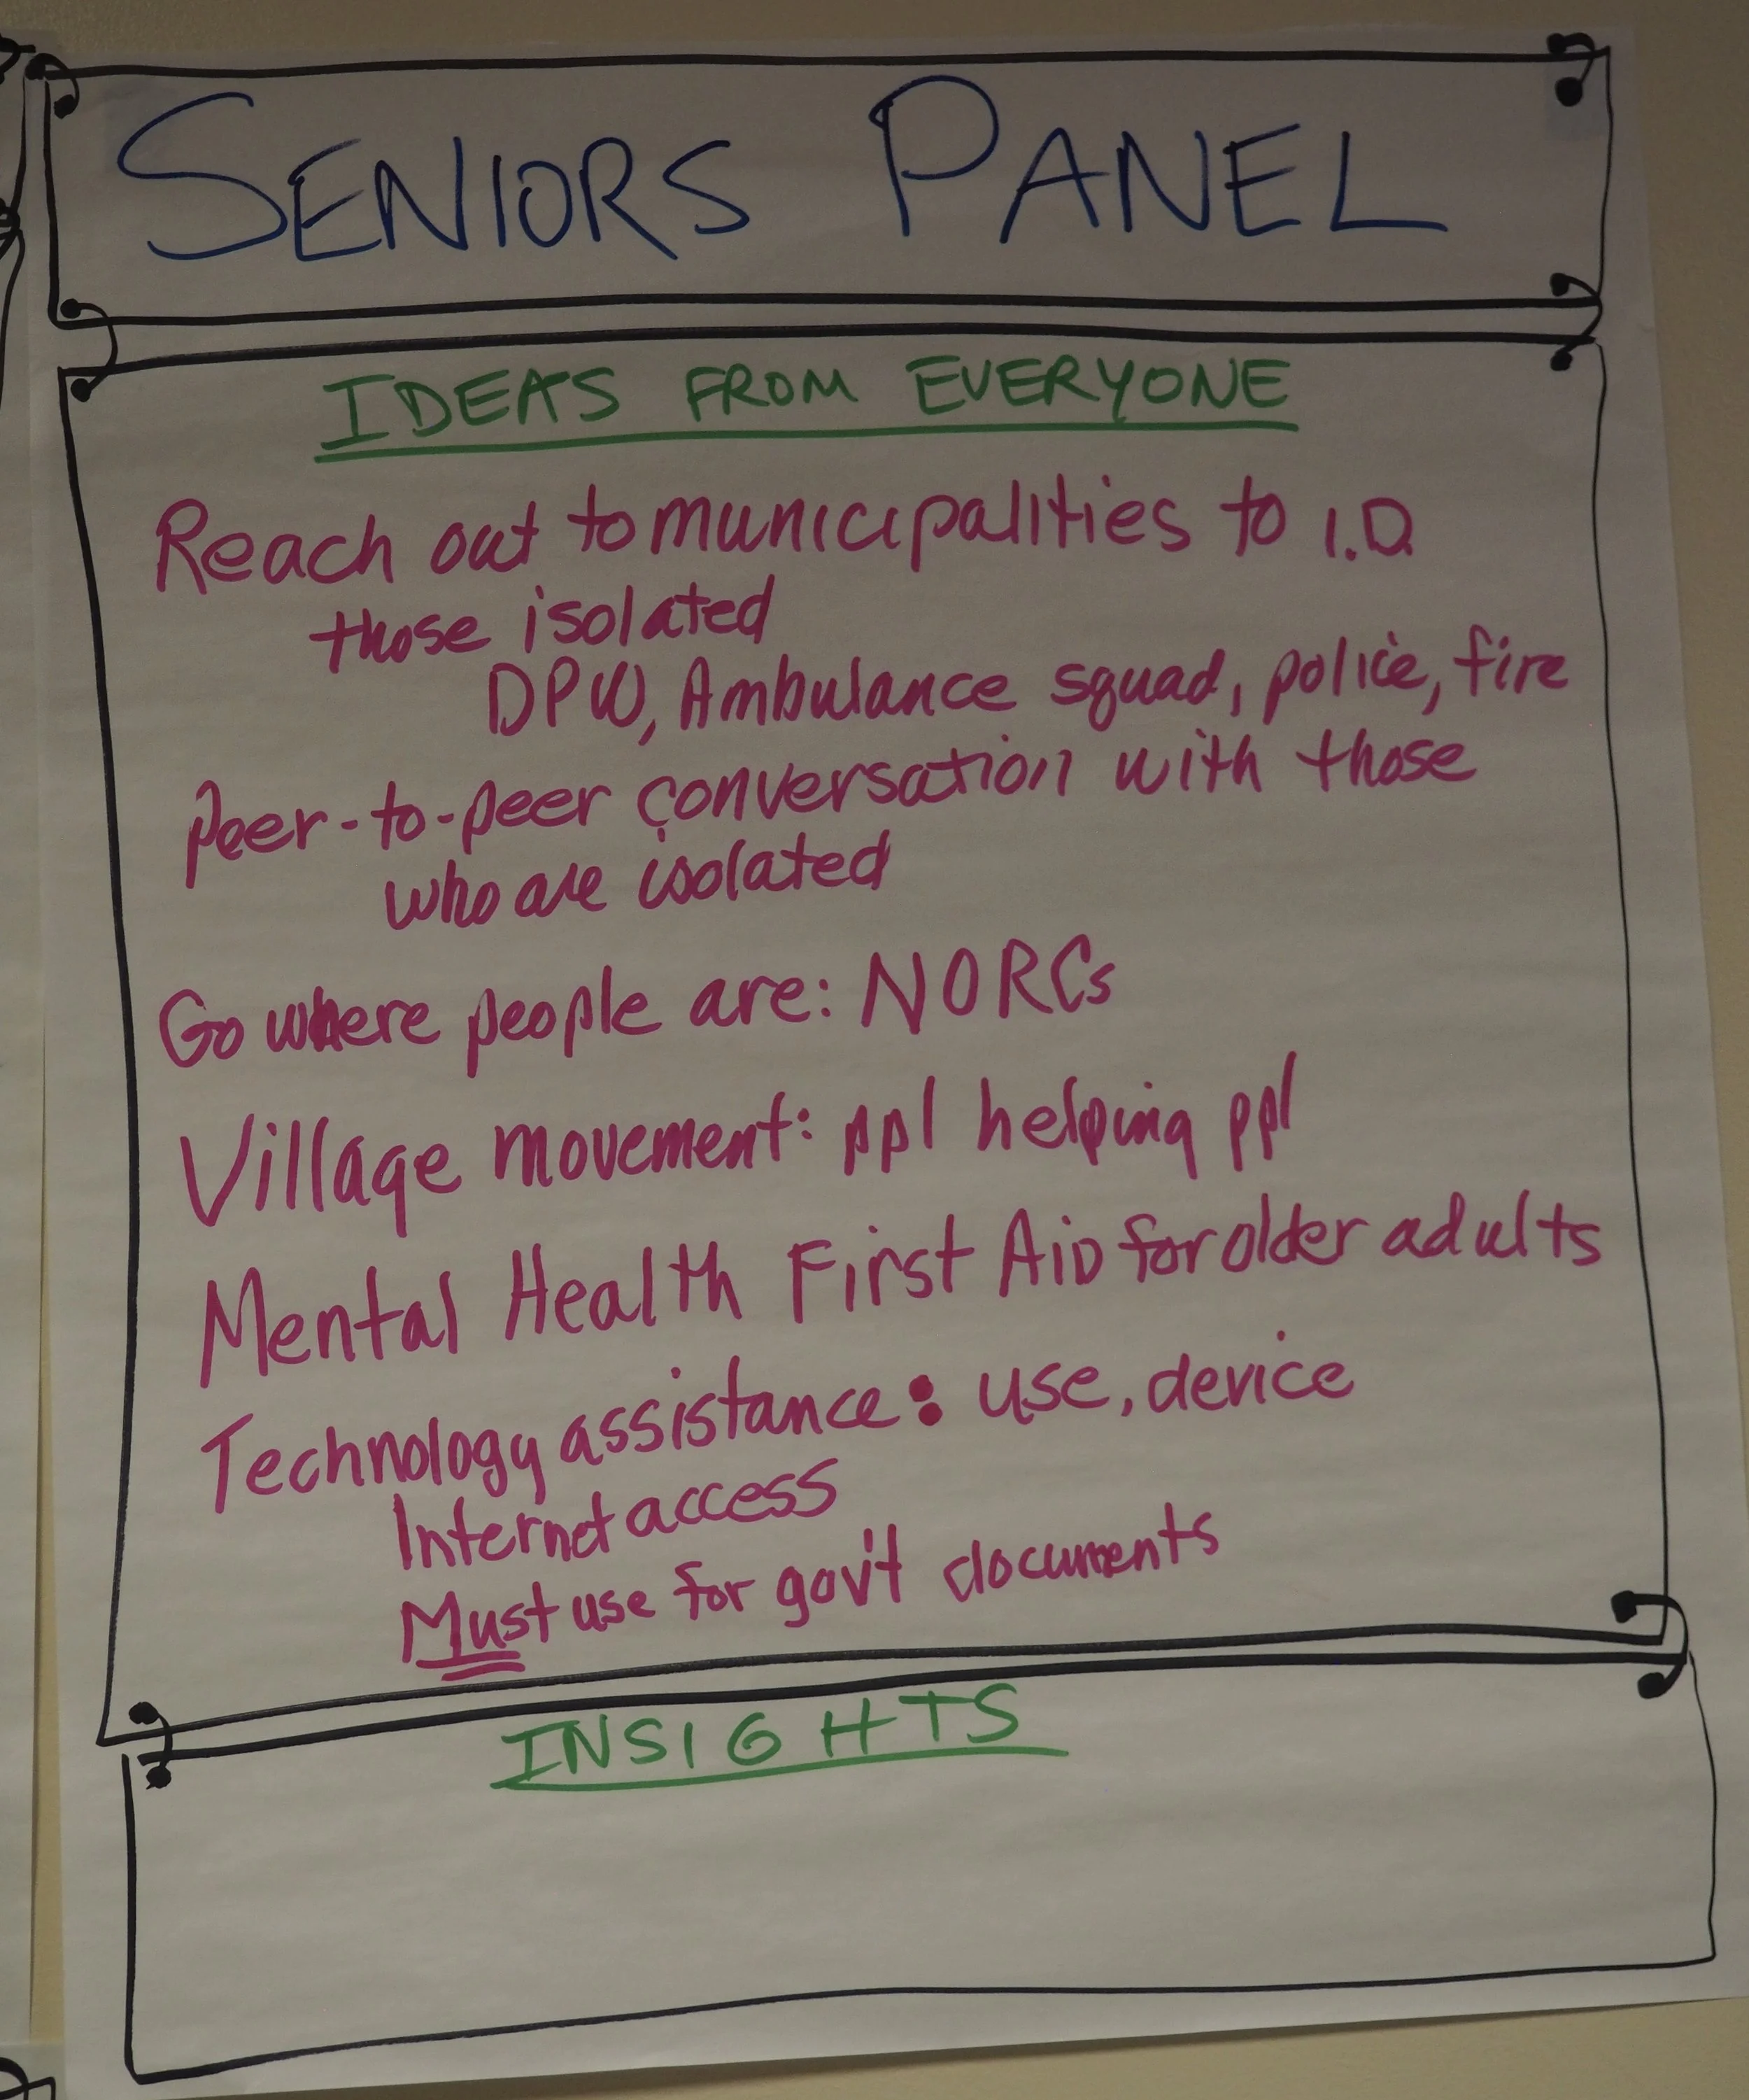 SENIORS PANEL
IDEAS FROM EVERYONE
Reach out to municipalities to I.D.
those isolated
DPW, Ambulance squad, police, fire
Peer-to-peer conversation with those
who are isolated
Go where people are: NORCs
Village movement: ppl helping ppl
Mental Health First Aid for older adults
Technology assistance: use, device
Internet access
Must use for gov't documents
INSIGHTS